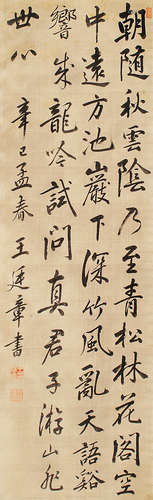 朝随秋雲陰乃至青松林花閣空
中遠方池巖下深竹風亂天語谿
響成龍吟試問真君子游山非
世心 辛巳孟春王廷章書